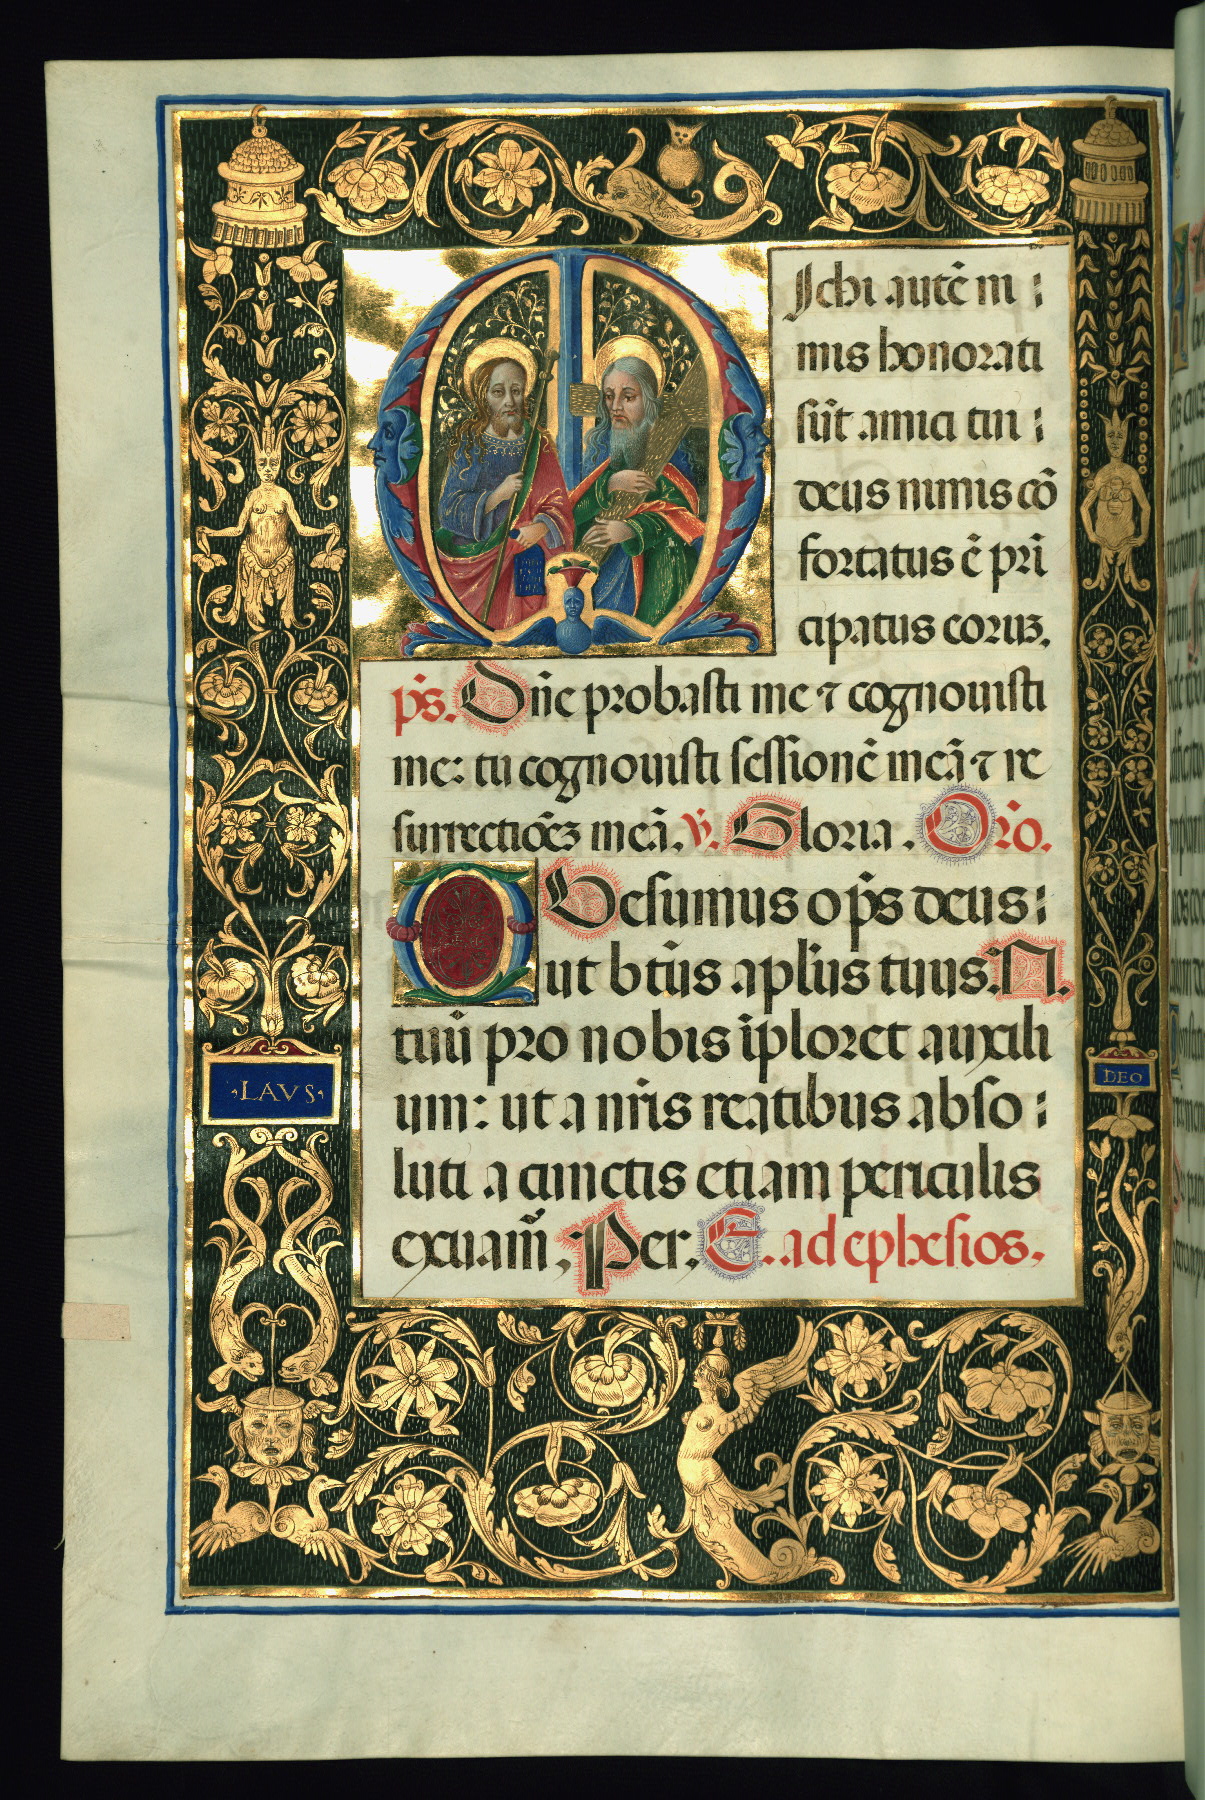 M Ichi autē ni
mis honorati
sūt amici tui
deus nimis cō
fortatus ē prī
cipatus coruꝫ.
ps̄. Dn̄e probasti me ⁊ cognouisti
me: tu cognouisti sessionē meā ⁊ re
surrectiōeꝫ meā. v̄. Gloria. Orō.
Q Vesumus op̄s deus
ut bt̄us apl̄us tuus. N.
tuū pro nobis īploret auxili
um: ut a nr̄is reatibus abso
luti a cunctis etiam periculis
exuam̄. Per. E. ad ephesios.
LAVS
DEO